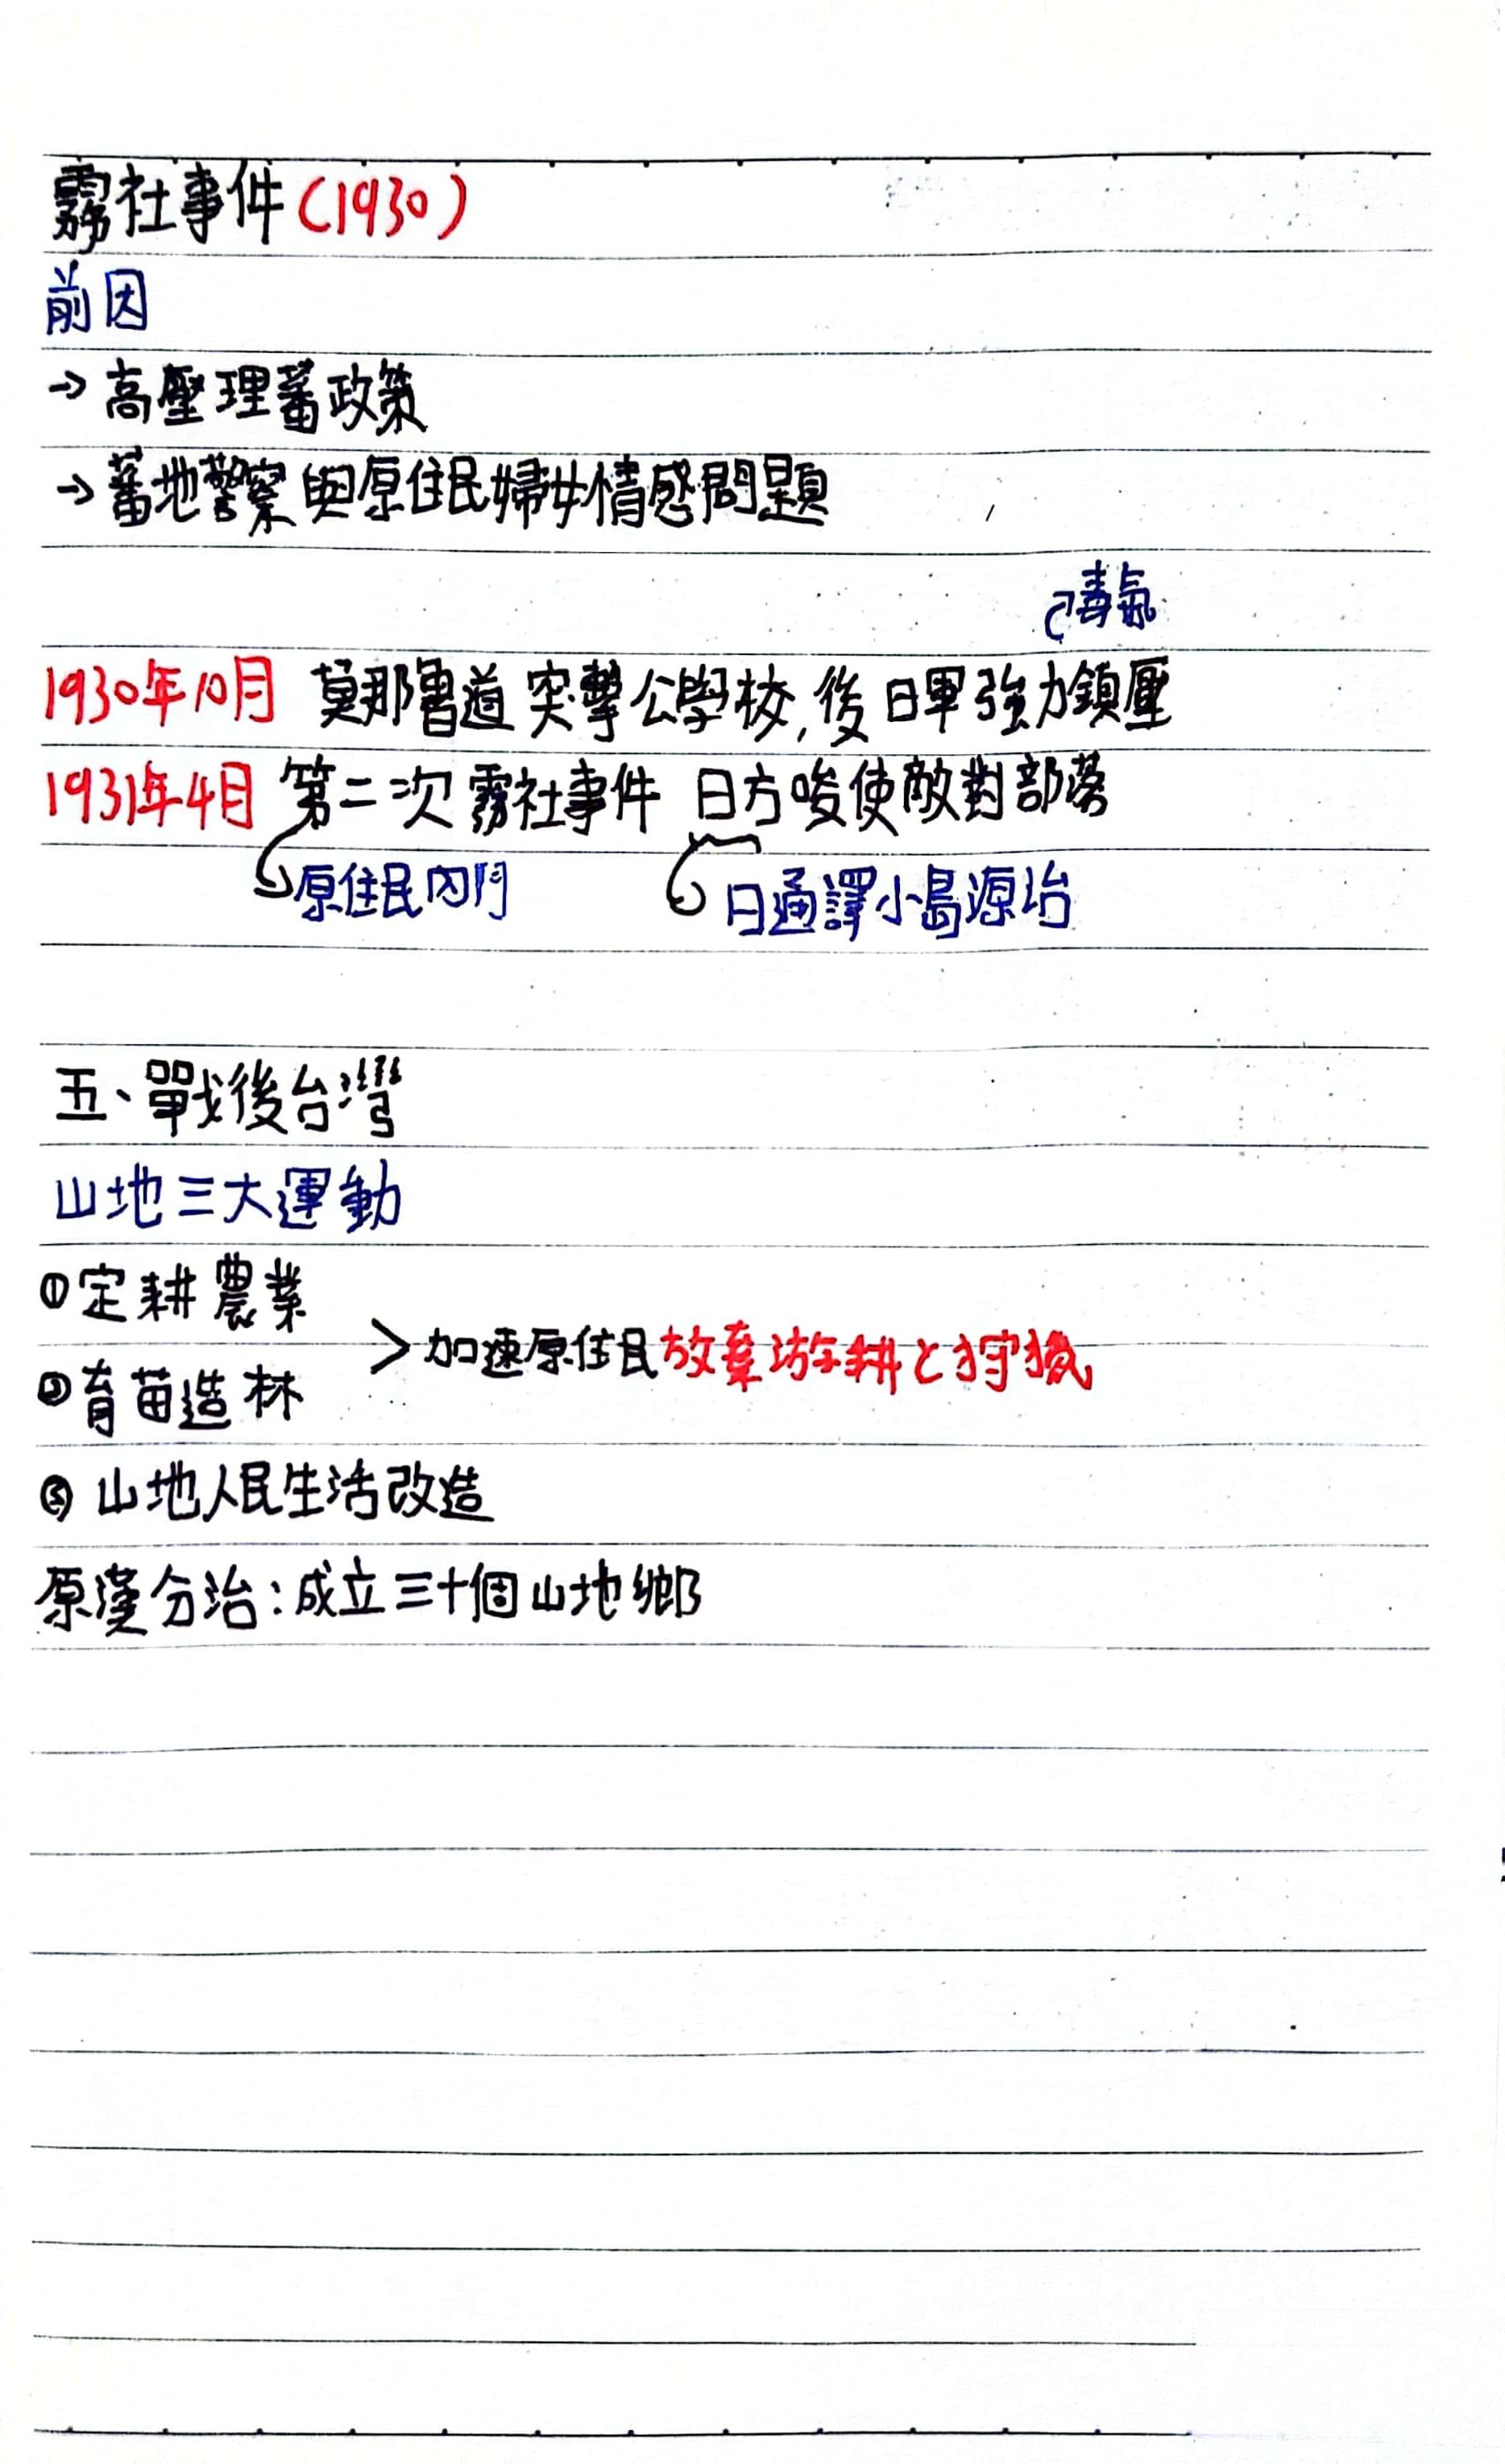 霧社事件(1930)
前因
→高壓理蕃政策
→蕃地警察與原住民婦女情感問題
毒氣
1930年10月 莫那魯道突擊公學校,後日軍強力鎮壓
1931年4月 第二次霧社事件 日方唆使敵對部落
原住民內鬥 日通譯小島源治
五、戰後台灣
山地三大運動
①定耕農業
>加速原住民放棄游耕と狩獵
②育苗造林
③山地人民生活改造
原漢分治:成立三十個山地鄉